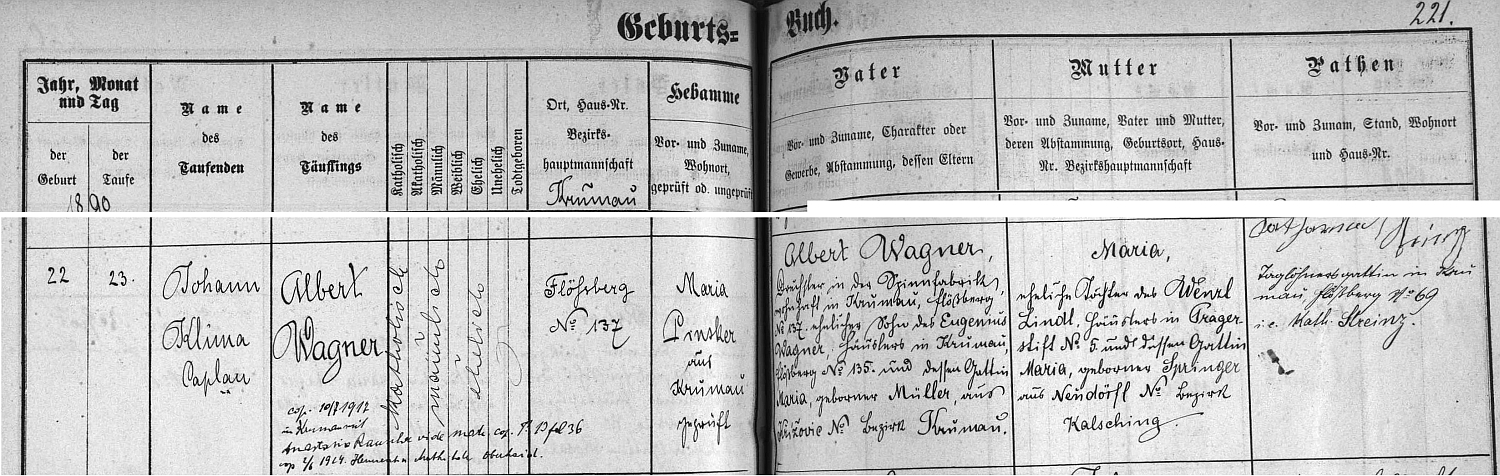 Geburts=
Buch.
221.
Jahr, Monat
und Tag
der
Geburt
der
Taufe
1890
Name
des
Taufenden
Name
des
Täuflings
Katholisch
Akatholisch
Männlich
Weiblich
Ehelich
Unehelich
Todtgeboren
Ort, Haus-Nr.
Bezirks-
hauptmannschaft
Krumau
Hebamme
Vor- und Zuname,
Wohnort,
geprüft od. ungeprüft
Vater
Vor- und Zuname, Charakter oder
Gewerbe, Abstammung, dessen Eltern
Mutter
Vor- und Zuname, Vater und Mutter,
deren Abstammung, Geburtsort, Haus-
Nr. Bezirkshauptmannschaft
Pathen
Vor- und Zunam, Stand, Wohnort
und Haus-Nr.
22
23.
Johann
Klima
Caplan
Albert
Wagner
cop. 1917
in Krumau mit
vide matr. cop. fol 36
cop 1924.
Katholisch
männlich
ehelich
Flößberg
No 137
Maria
aus
Krumau
geprüft
Albert Wagner,
in der Spinnfabrik,
wohnhaft in Krumau, Flößberg
No 137. ehelicher Sohn des Eugenius
Wagner, Häuslers in Krumau,
Flößberg No 135. und dessen Gattin
Maria, geborner Müller, aus
No Bezirk Krumau.
Maria,
eheliche Tochter des Wenzl
Lindl, Häuslers in Prager-
stift No 5. und dessen Gattin
Maria, geborner Springer
aus Neudörfl No Bezirk
Kalsching.
Katharina
Taglöhnersgattin in Kru
mau, Flößberg No 69
i.e. Kath. Streinz.